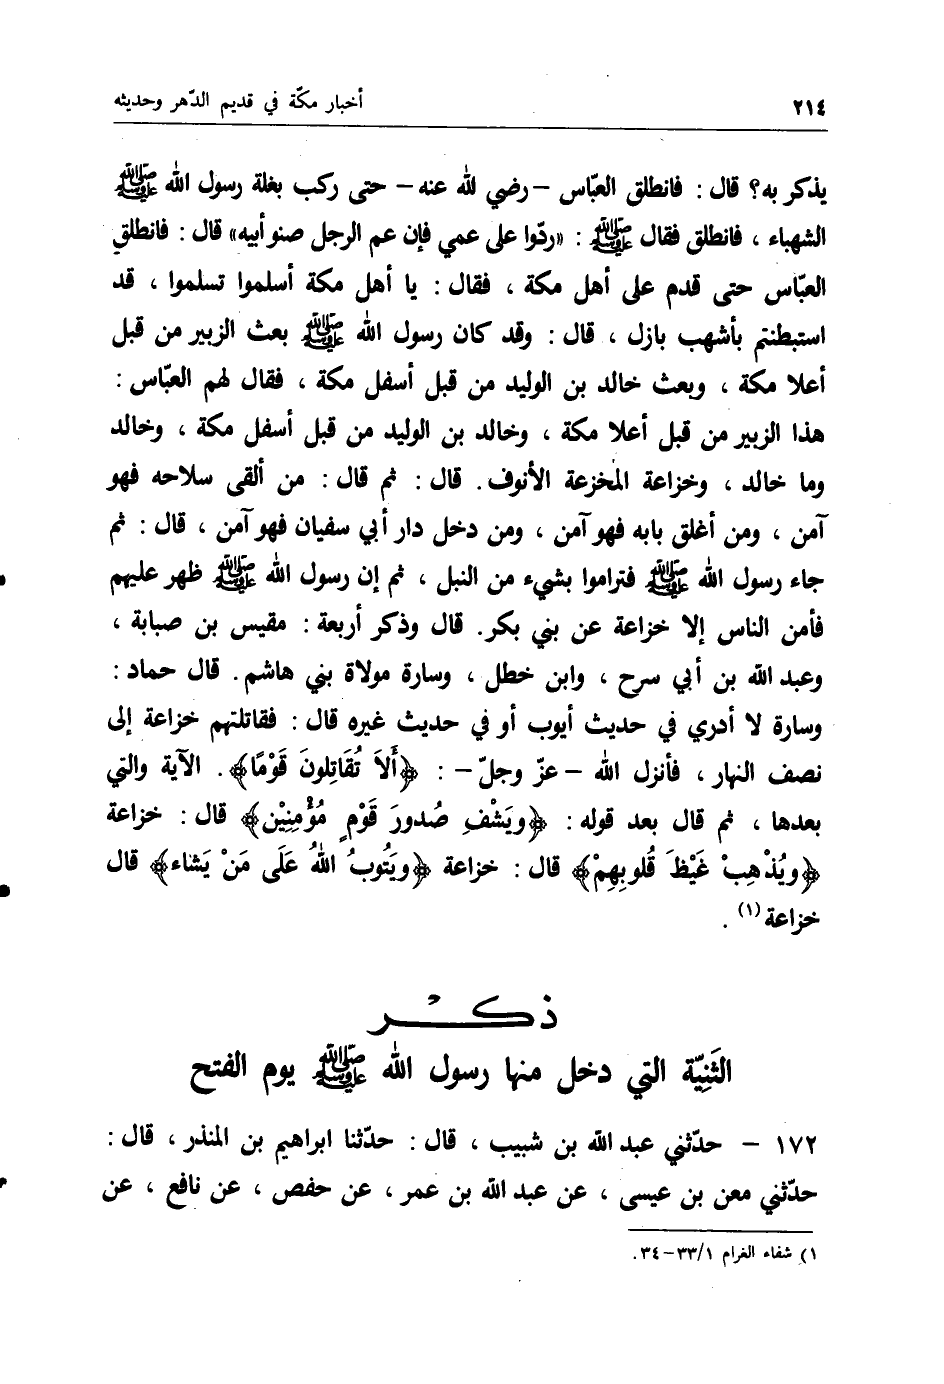 ٢١٤ أخبار مكّة في قديم الدّهر وحديثه
يذكر به؟ قال : فانطلق العبّاس –رضي لله عنه– حتى ركب بغلة رسول الله ﷺ
الشهباء ، فانطلق فقال ﷺ : «ردّوا على عمي فإن عم الرجل صنو أبيه» قال : فانطلق
العبّاس حتى قدم على أهل مكة ، فقال : يا أهل مكة أسلموا تسلموا ، قد
استبطنتم بأشهب بازل ، قال : وقد كان رسول الله ﷺ بعث الزبير من قبل
أعلا مكة ، وبعث خالد بن الوليد من قبل أسفل مكة ، فقال لهم العبّاس :
هذا الزبير من قبل أعلا مكة ، وخالد بن الوليد من قبل أسفل مكة ، وخالد
وما خالد ، وخزاعة المخزعة الأنوف. قال : ثم قال : من ألقى سلاحه فهو
آمن ، ومن أغلق بابه فهو آمن ، ومن دخل دار أبي سفيان فهو آمن ، قال : ثم
جاء رسول الله ﷺ فتراموا بشيء من النبل ، ثم إن رسول الله ﷺ ظهر عليهم
فأمن الناس إلا خزاعة عن بني بكر. قال وذكر أربعة : مقيس بن صبابة ،
وعبد الله بن أبي سرح ، وابن خطل ، وسارة مولاة بني هاشم. قال حماد :
وسارة لا أدري في حديث أيوب أو في حديث غيره قال : فقاتلتهم خزاعة إلى
نصف النهار ، فأنزل الله –عزّ وجلّ– : ﴿أَلاَ تُقَاتِلونَ قَوْمًا﴾. الآية والتي
بعدها ، ثم قال بعد قوله : ﴿ويَشْفِ صُدورَ قَوْمٍ مُؤْمِنِيْن﴾ قال : خزاعة
﴿ويُذْهِبْ غَيْظَ قُلوبِهِمْ﴾ قال : خزاعة ﴿ويَتُوبُ اللهُ عَلَى مَنْ يَشاء﴾ قال
خزاعة(١) .
ذكْر
الثَنِيّة التي دخل منها رسول الله ﷺ يوم الفتح
١٧٢ – حدّثني عبد الله بن شبيب ، قال : حدّثنا ابراهيم بن المنذر ، قال :
حدّثني معن بن عيسى ، عن عبد الله بن عمر ، عن حفص ، عن نافع ، عن
١) شفاء الغرام ١/ ٣٣–٣٤.